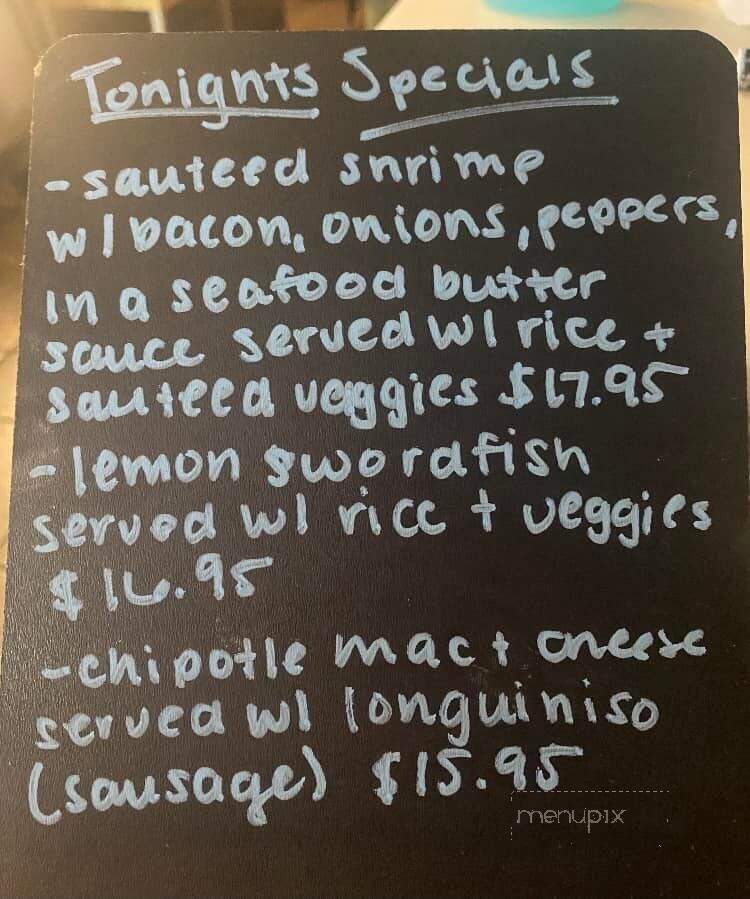 Tonights Specials
- sauteed shrimp
w/ bacon, onions, peppers,
in a seafood butter
sauce served w/ rice +
sauteed veggies $17.95
- lemon swordfish
served w/ rice + veggies
$16.95
- chipotle mac + cheese
served w/ longuiniso
(sausage) $15.95
menupix